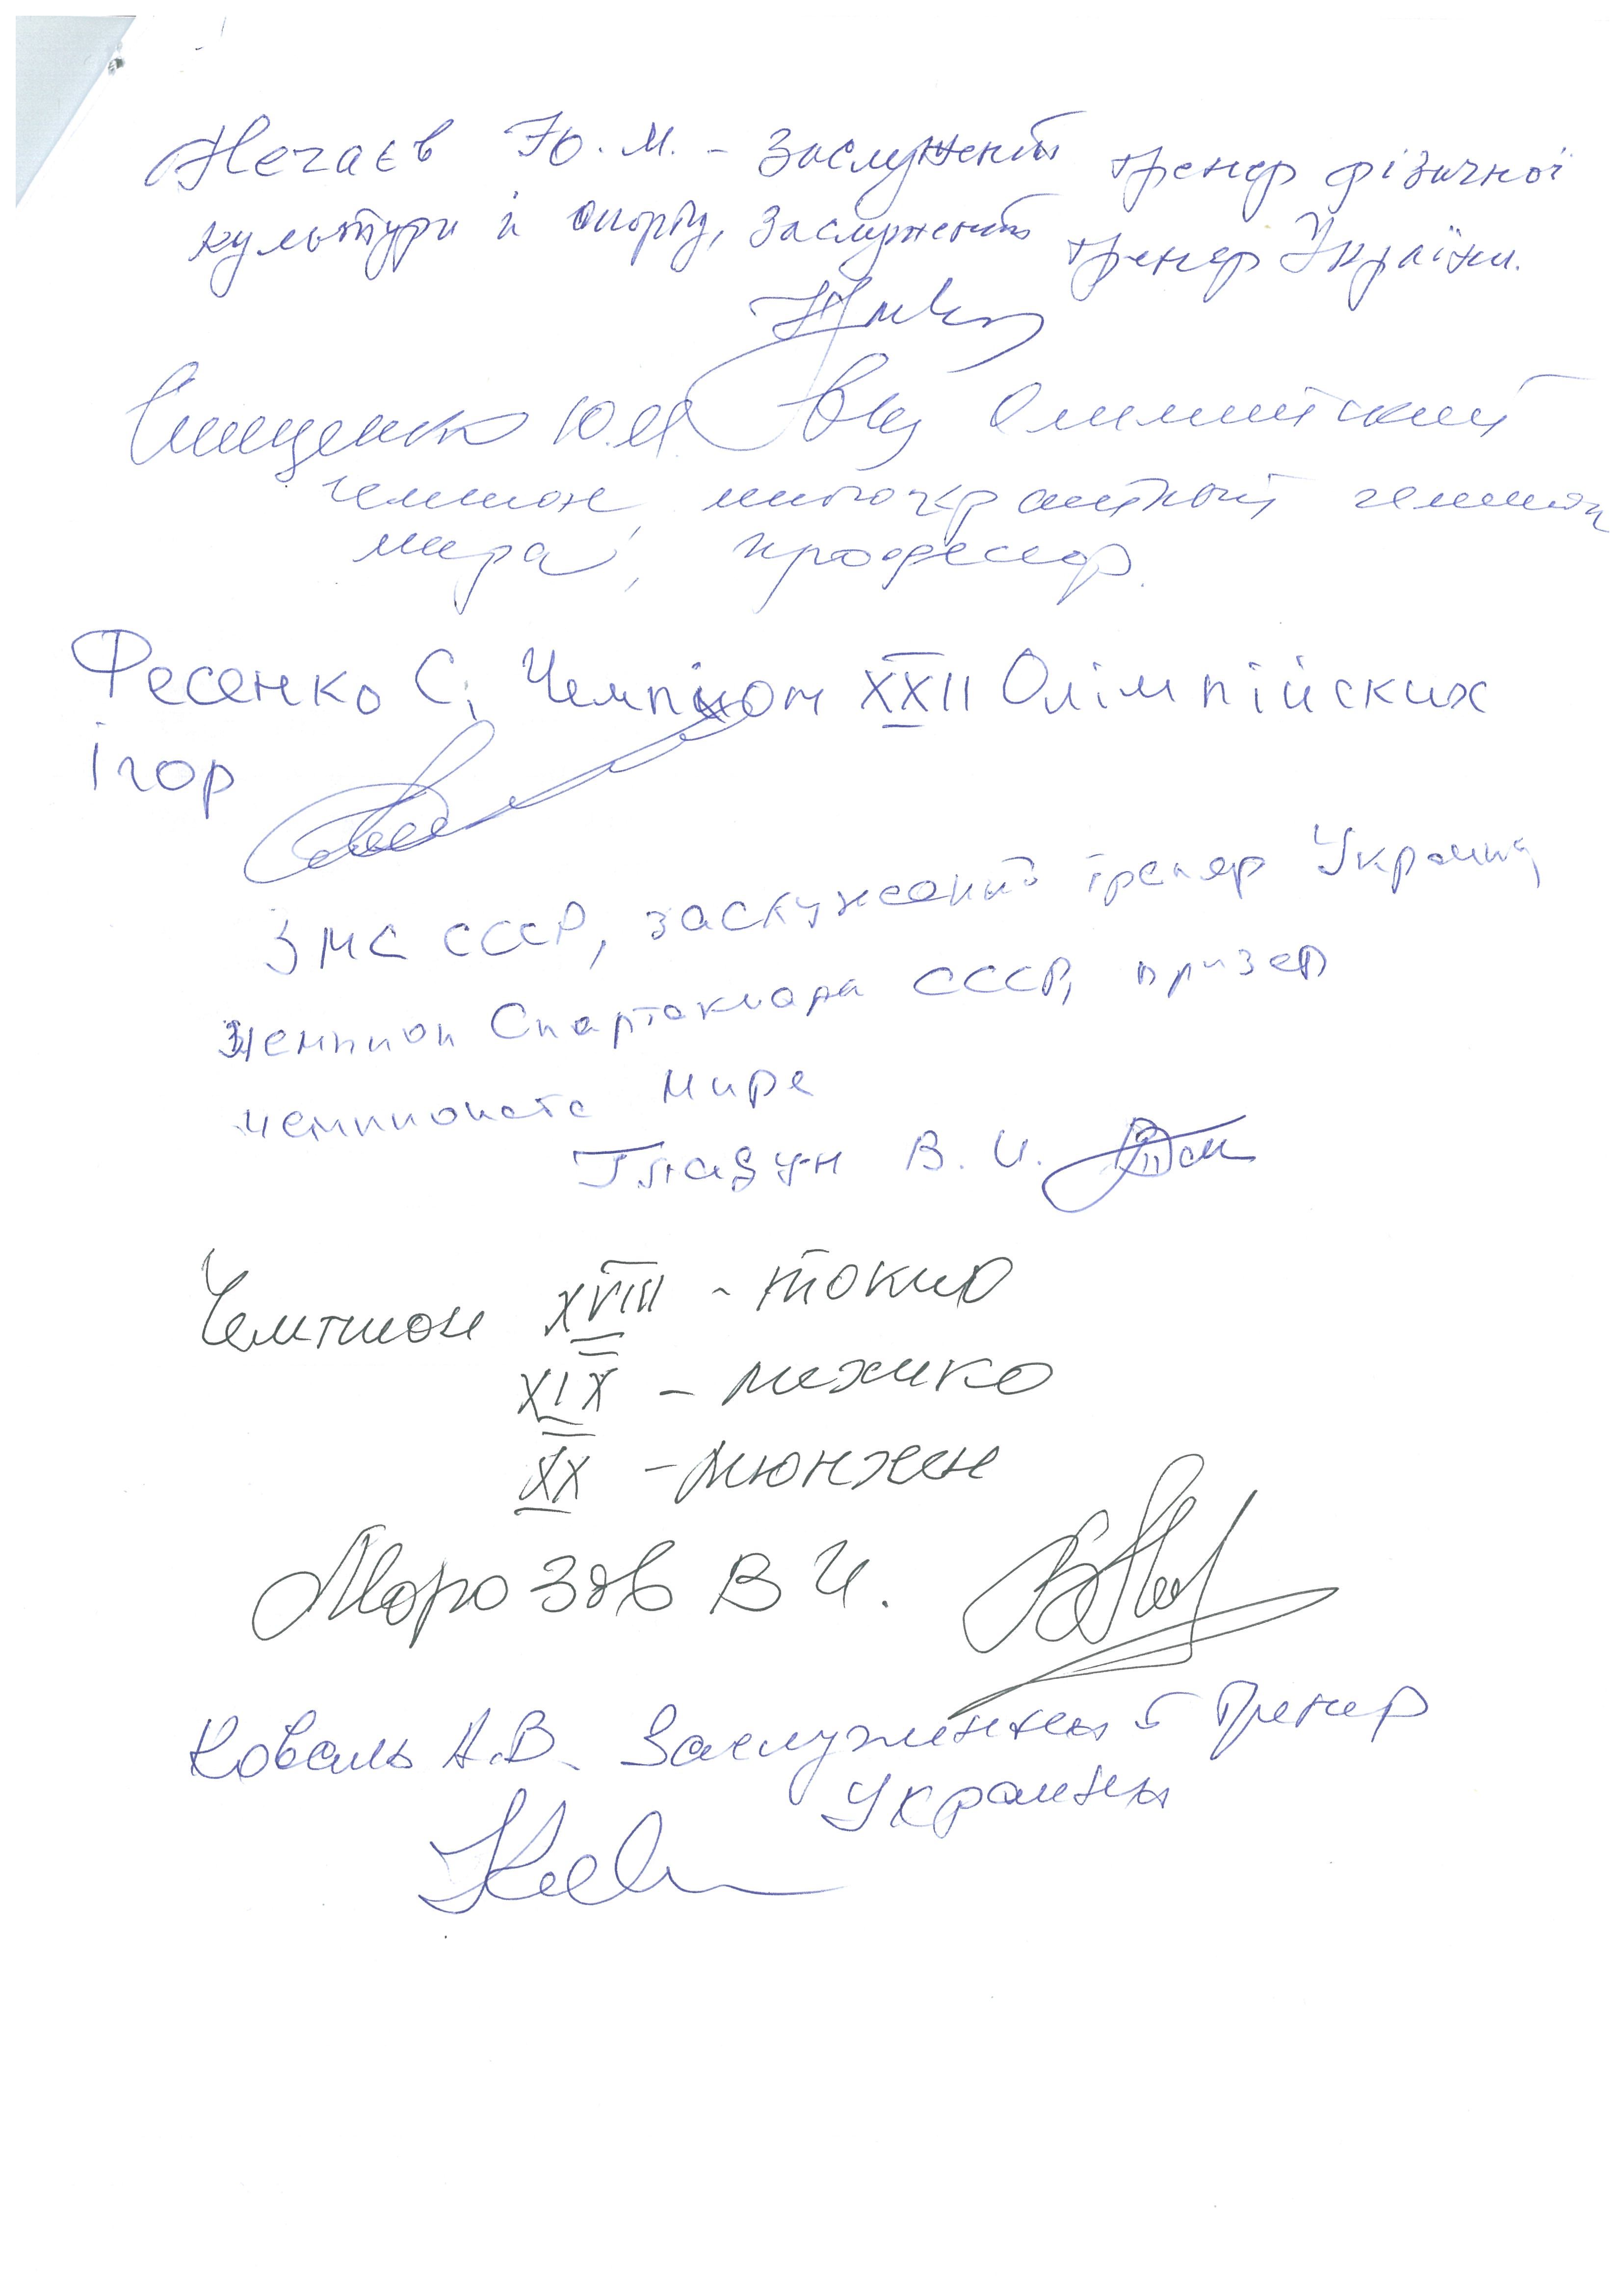 Нечаєв Ю. М. - Заслужений тренер фізичної
культури й спорту, Заслужений тренер України.
Ю.М Олимпийский
чемпион, многократный чемпион
мира, професор.
Фесенко С. Чемпіон XXII Олімпійских
ігор
ЗМС СССР, заслужений тренер Украины
чемпион Спартакиада СССР, призер
чемпионата Мира
Гладун В. И.
Чемпион XVIII - токио
XIX - мехико
XX - мюнхен
Морозов В И.
Коваль А.В. Заслуженный Тренер
Украины